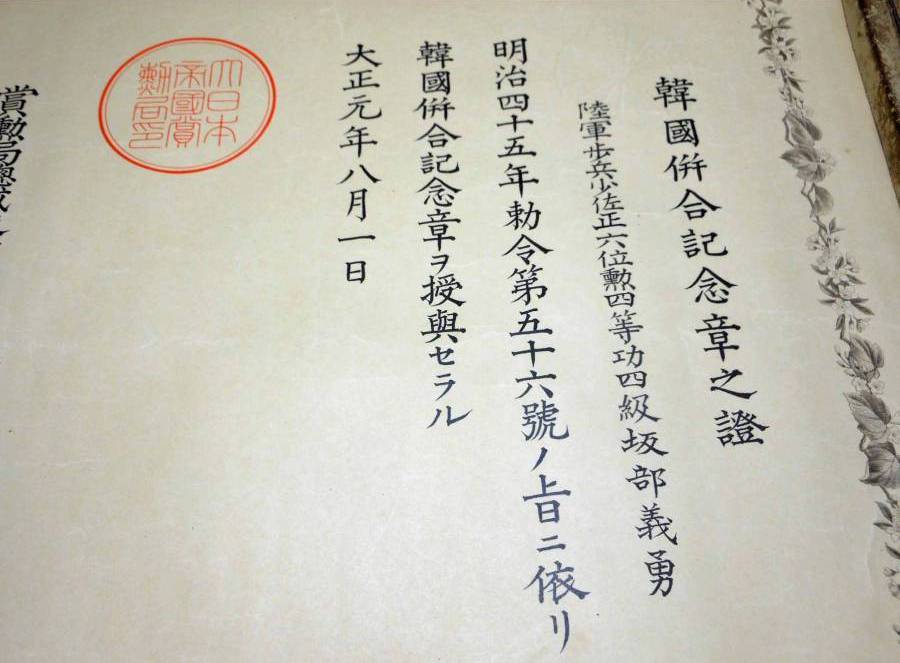 韓國併合記念章之證
陸軍歩兵少佐正六位勲四等功四級坂部義勇
明治四十五年勅令第五十六號ノ旨ニ依リ
韓國併合記念章ヲ授與セラル
大正元年八月一日
大日本
帝國賞
勲局印
賞勲局總裁